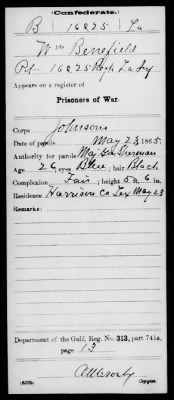 Confederate.
B 16 & 25 La
Wm Benefield
Pvt 16 & 25 Regt La Inf
Appears on a register of
Prisoners of War.
Corps Johnsons
Date of parole May 23, 1865.
Authority for parole Maj Gen Sherman
Age 26, eyes Blue, hair Black
Complexion Fair; height 5 ft. 6 in.
Residence Harrison Co Tex May 23
Remarks:
Department of the Gulf, Reg. No. 313, part 741a,
page 13
Copyist.